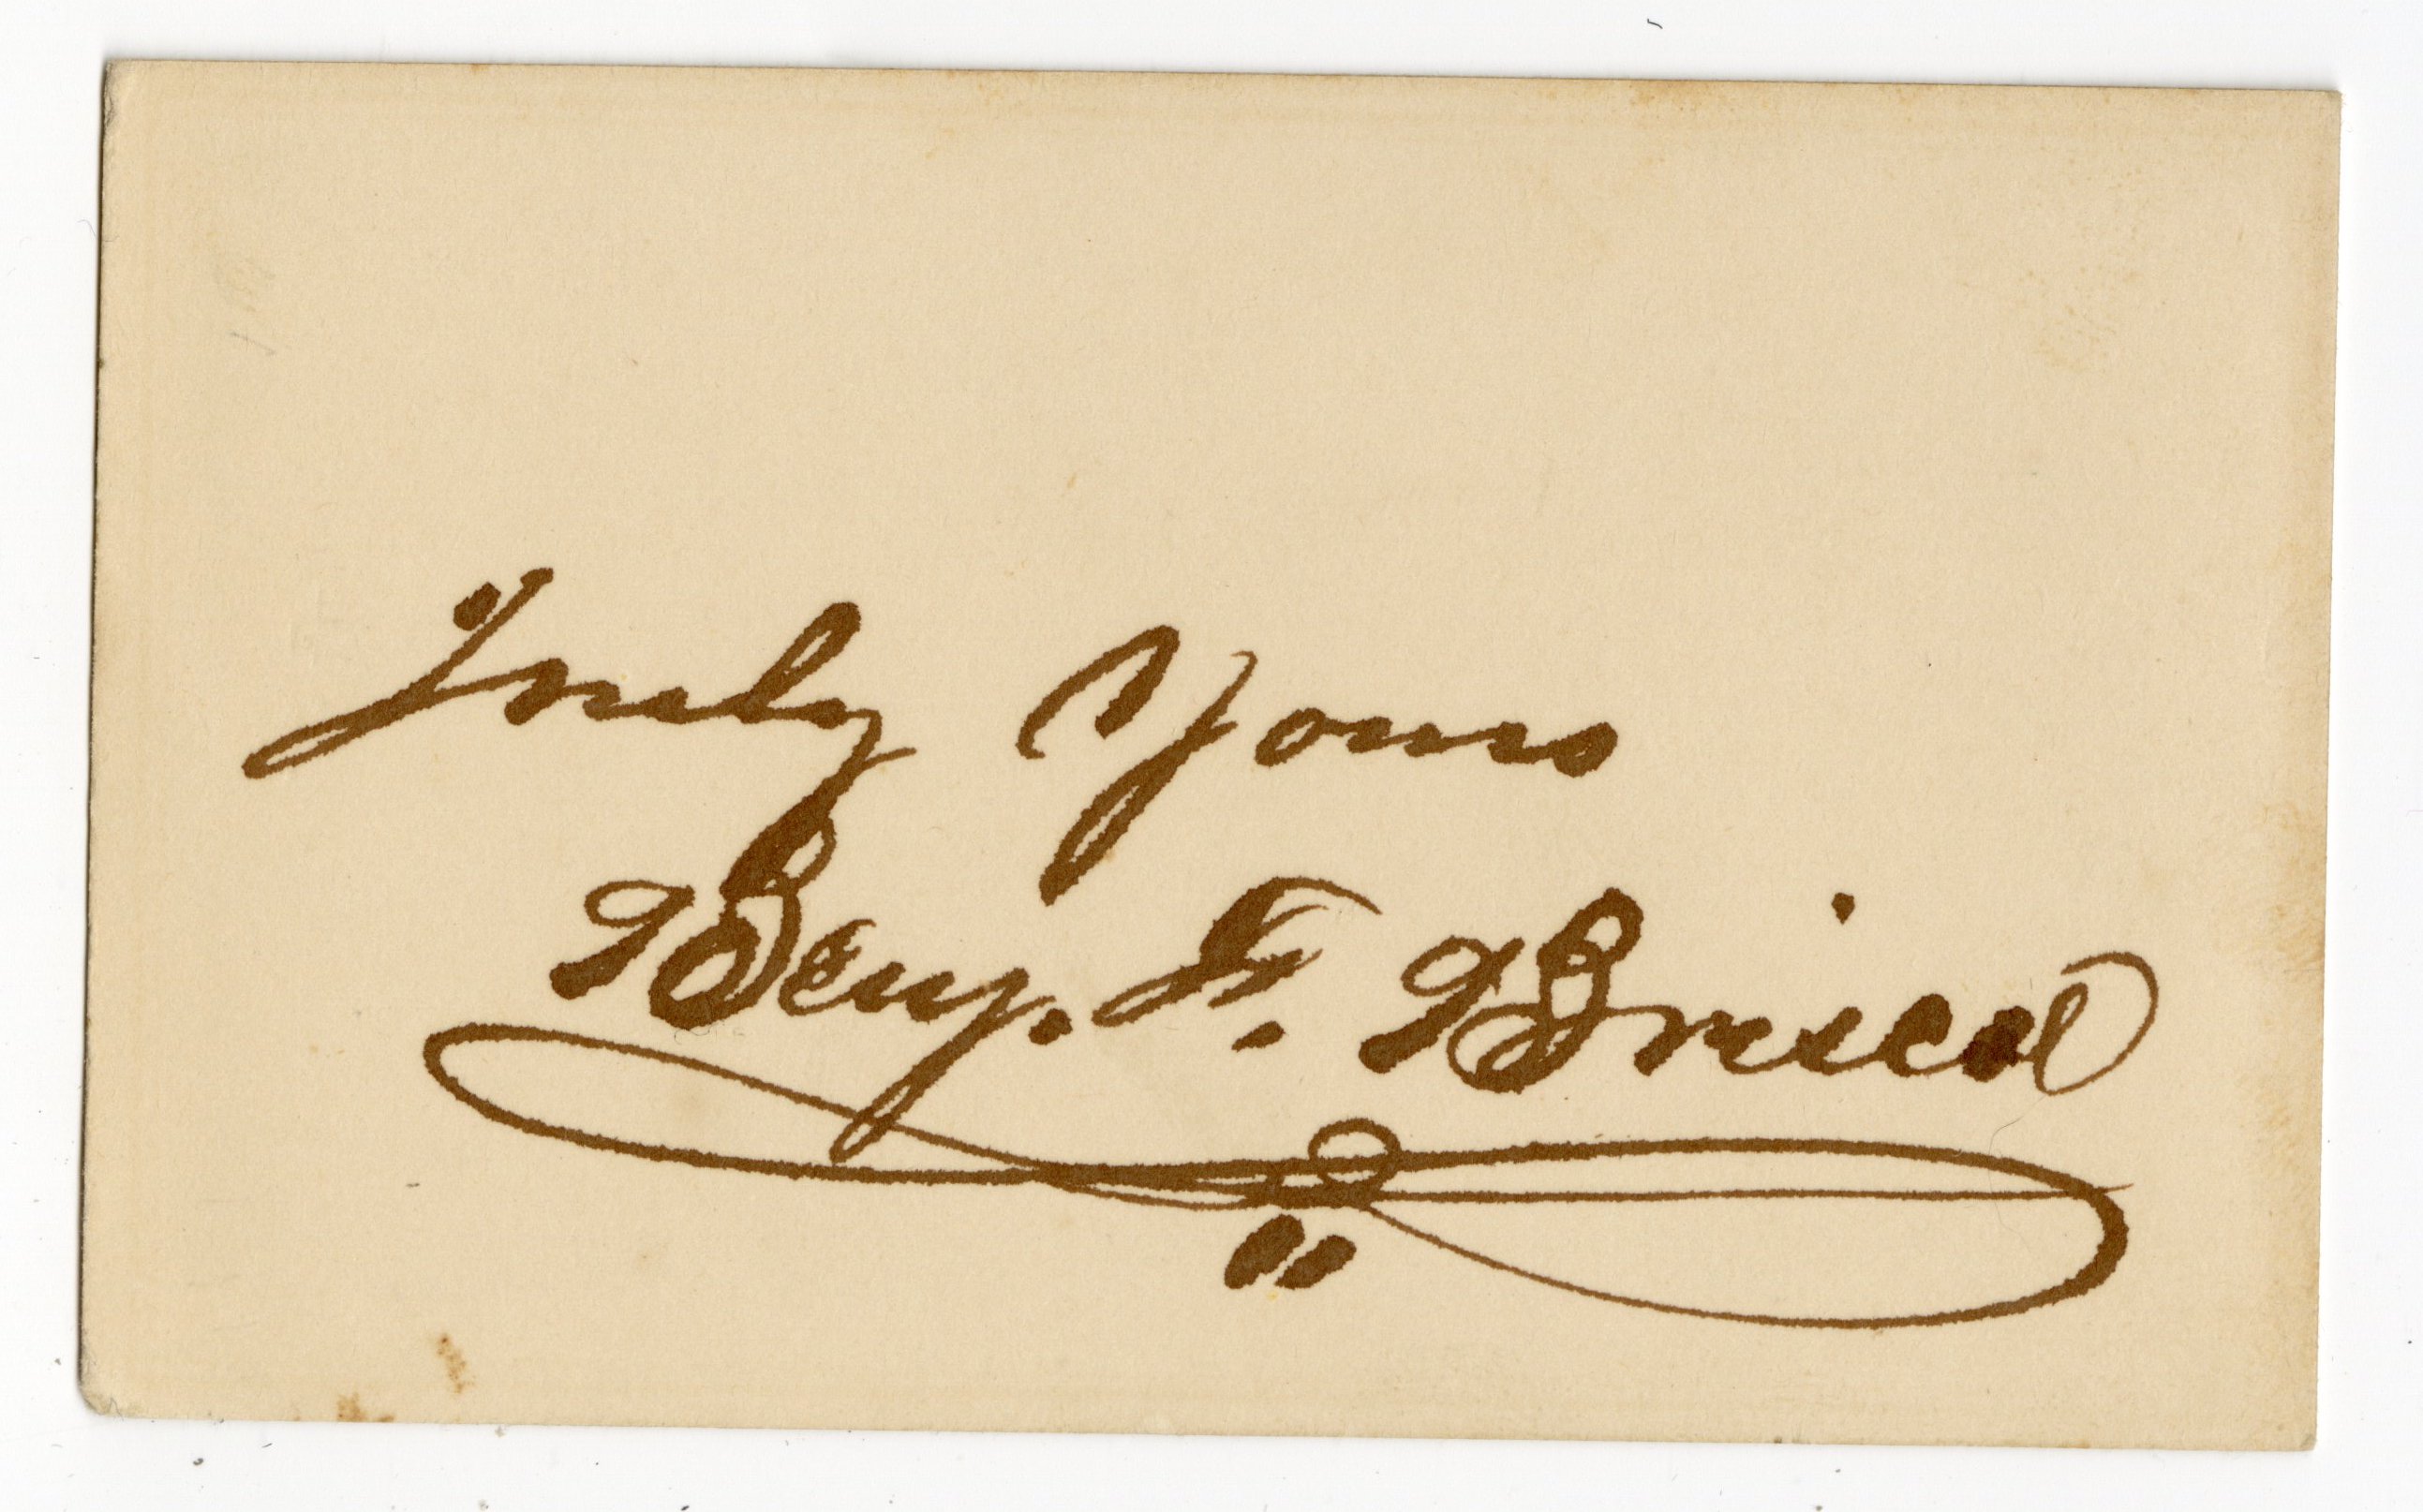 Truly Yours
Benj. F. Bristol